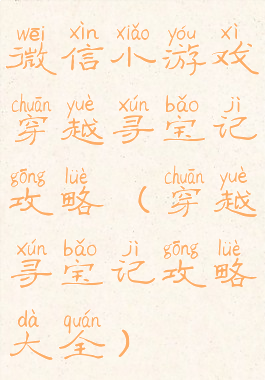 wēi xìn xiǎo yóu xì
微信小游戏
chuān yuè xún bǎo jì
穿越寻宝记
gōng lüè chuān yuè
攻略（穿越
xún bǎo jì gōng lüè
寻宝记攻略
dà quán
大全）